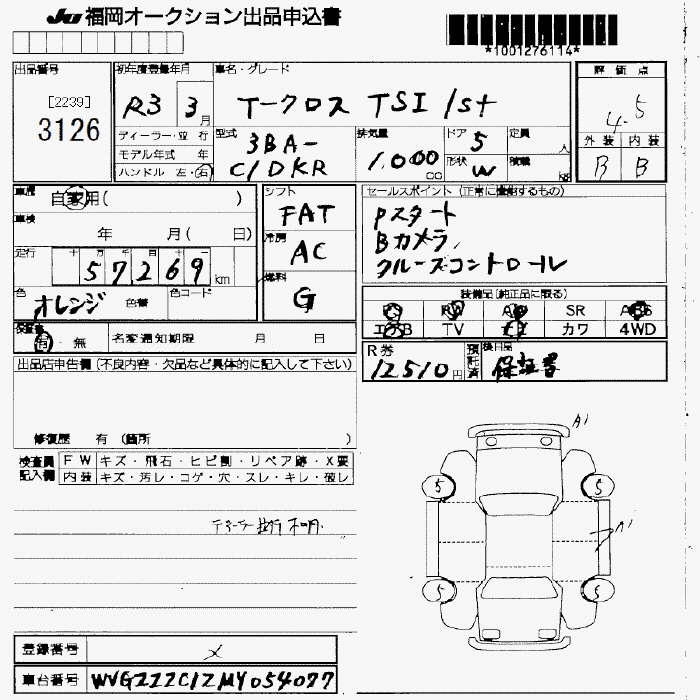 JU 福岡オークション出品申込書
*1001276114*
出品番号
[2239]
3126
初年度登録年月
R3 3月
車名・グレード
T-クロス TSI 1st
評価点
4.5
ディーラー・並行
モデル年式 年
ハンドル 左・右
型式
3BA-
C1DKR
排気量
1,000 cc
ドア 5
形状 W
定員 人
積載 kg
外装 内装
B B
車歴
自家用( )
車検
年 月( 日)
走行
十 万 千 百 十
57269 km
色
オレンジ 色替
色コード
シフト
FAT
冷房
AC
燃料
G
セールスポイント (正常に機能するもの)
Pスタート
Bカメラ
クルーズコントロール
装備品(純正品に限る)
PS PW AW SR ABS
エアB TV ナビ カワ 4WD
保証書
有・無
名変通知期限 月 日
R券
12510円
預託済
後日品
保証書
出品店申告欄(不良内容・欠品など具体的に記入して下さい)
修復歴 有 (箇所 )
検査員
記入欄
FW キズ・飛石・ヒビ割・リペア跡・X要
内装 キズ・汚レ・コゲ・穴・スレ・キレ・破レ
A1
5 5
A1
5 5
登録番号 メ
車台番号 WVGZZZC1ZMY054077